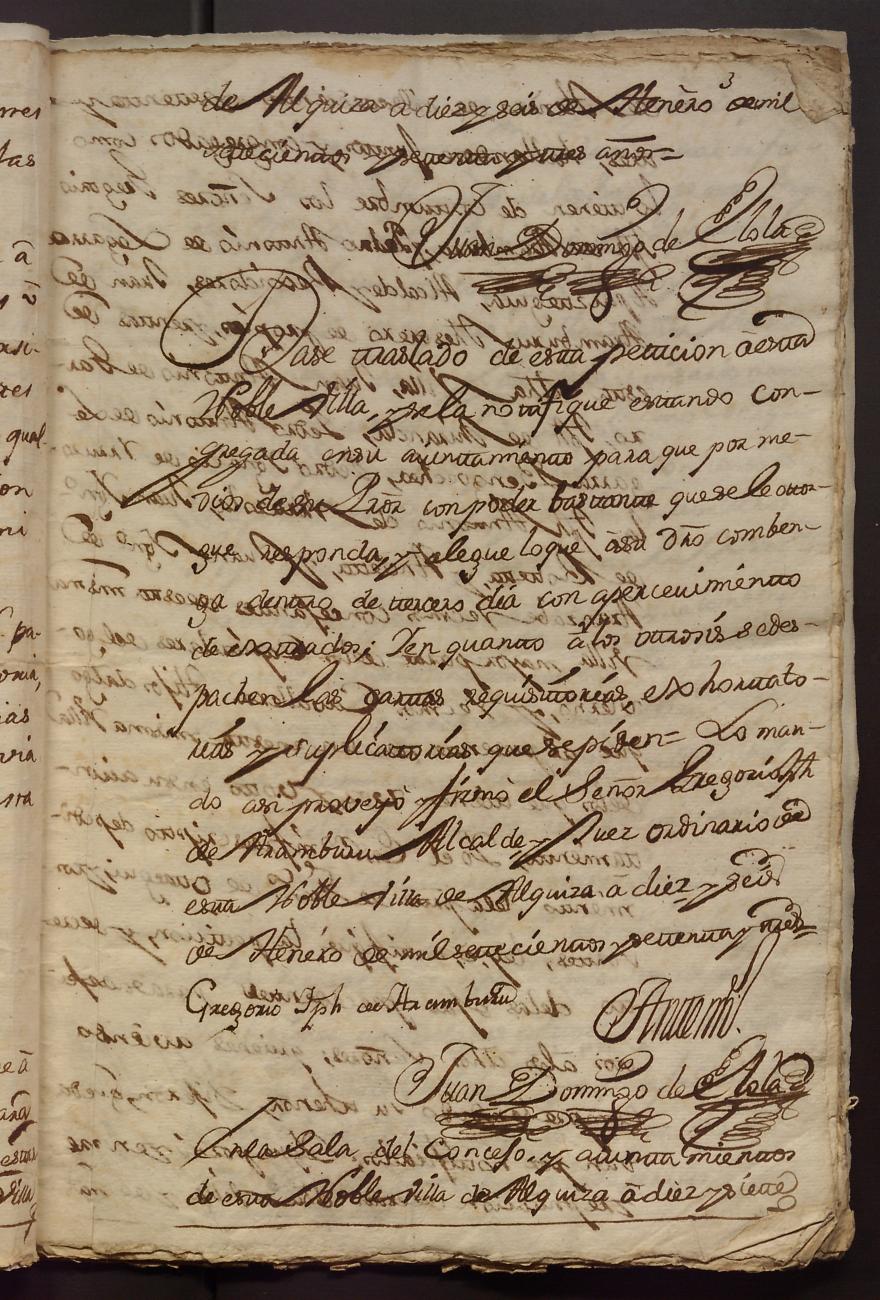 de Alquiza a diez y seis de Henèro de mil
settecienttos y settentta y ttres años=
Juan Domingo de Elola
Dase ttraslado de estta petticion â estta
Noble Villa, y se la nottifique esttando con-
gregada en su ayunttamientto para que por me-
dios de su Prōr con poder basttantte que se le ottor-
gue responda, y alegue lo que â su dro comben-
ga denttro de ttercero dia con apercevimientto
de esttrados; Y en quantto â los ottrosis se des-
pachen las carttas requisittorias, exhortatto-
rias y suplicattorias que se piden= Lo man-
do assi proveyó y firmó el Señor Gregorio Jph
de Aramburu Alcalde y Juez ordinario de
estta Noble Villa de Alquiza â diez y seis
de Henéro de mil settecienttos y settentta y ttres=
Gregorio Jph de Aramburu
Antte mi
Juan Domingo de Elola
En la Sala del Concejo, y aiunttamienttos
de estta Noble Villa de Alquiza â diez y siette